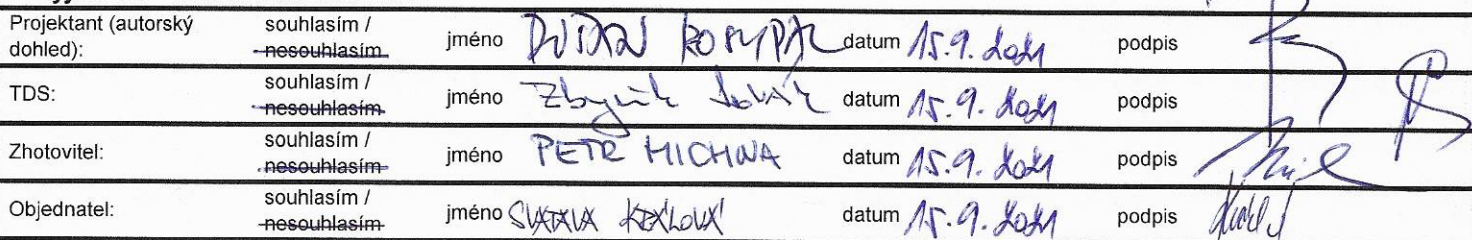 Projektant (autorský dohled): souhlasím / nesouhlasím jméno DUŠAN datum 15.9.2021 podpis
TDS: souhlasím / nesouhlasím jméno Zbyněk Novák datum 15.9.2021 podpis
Zhotovitel: souhlasím / nesouhlasím jméno PETR MICHNA datum 15.9.2021 podpis
Objednatel: souhlasím / nesouhlasím jméno SVATAVA KRÁLOVÁ datum 15.9.2021 podpis